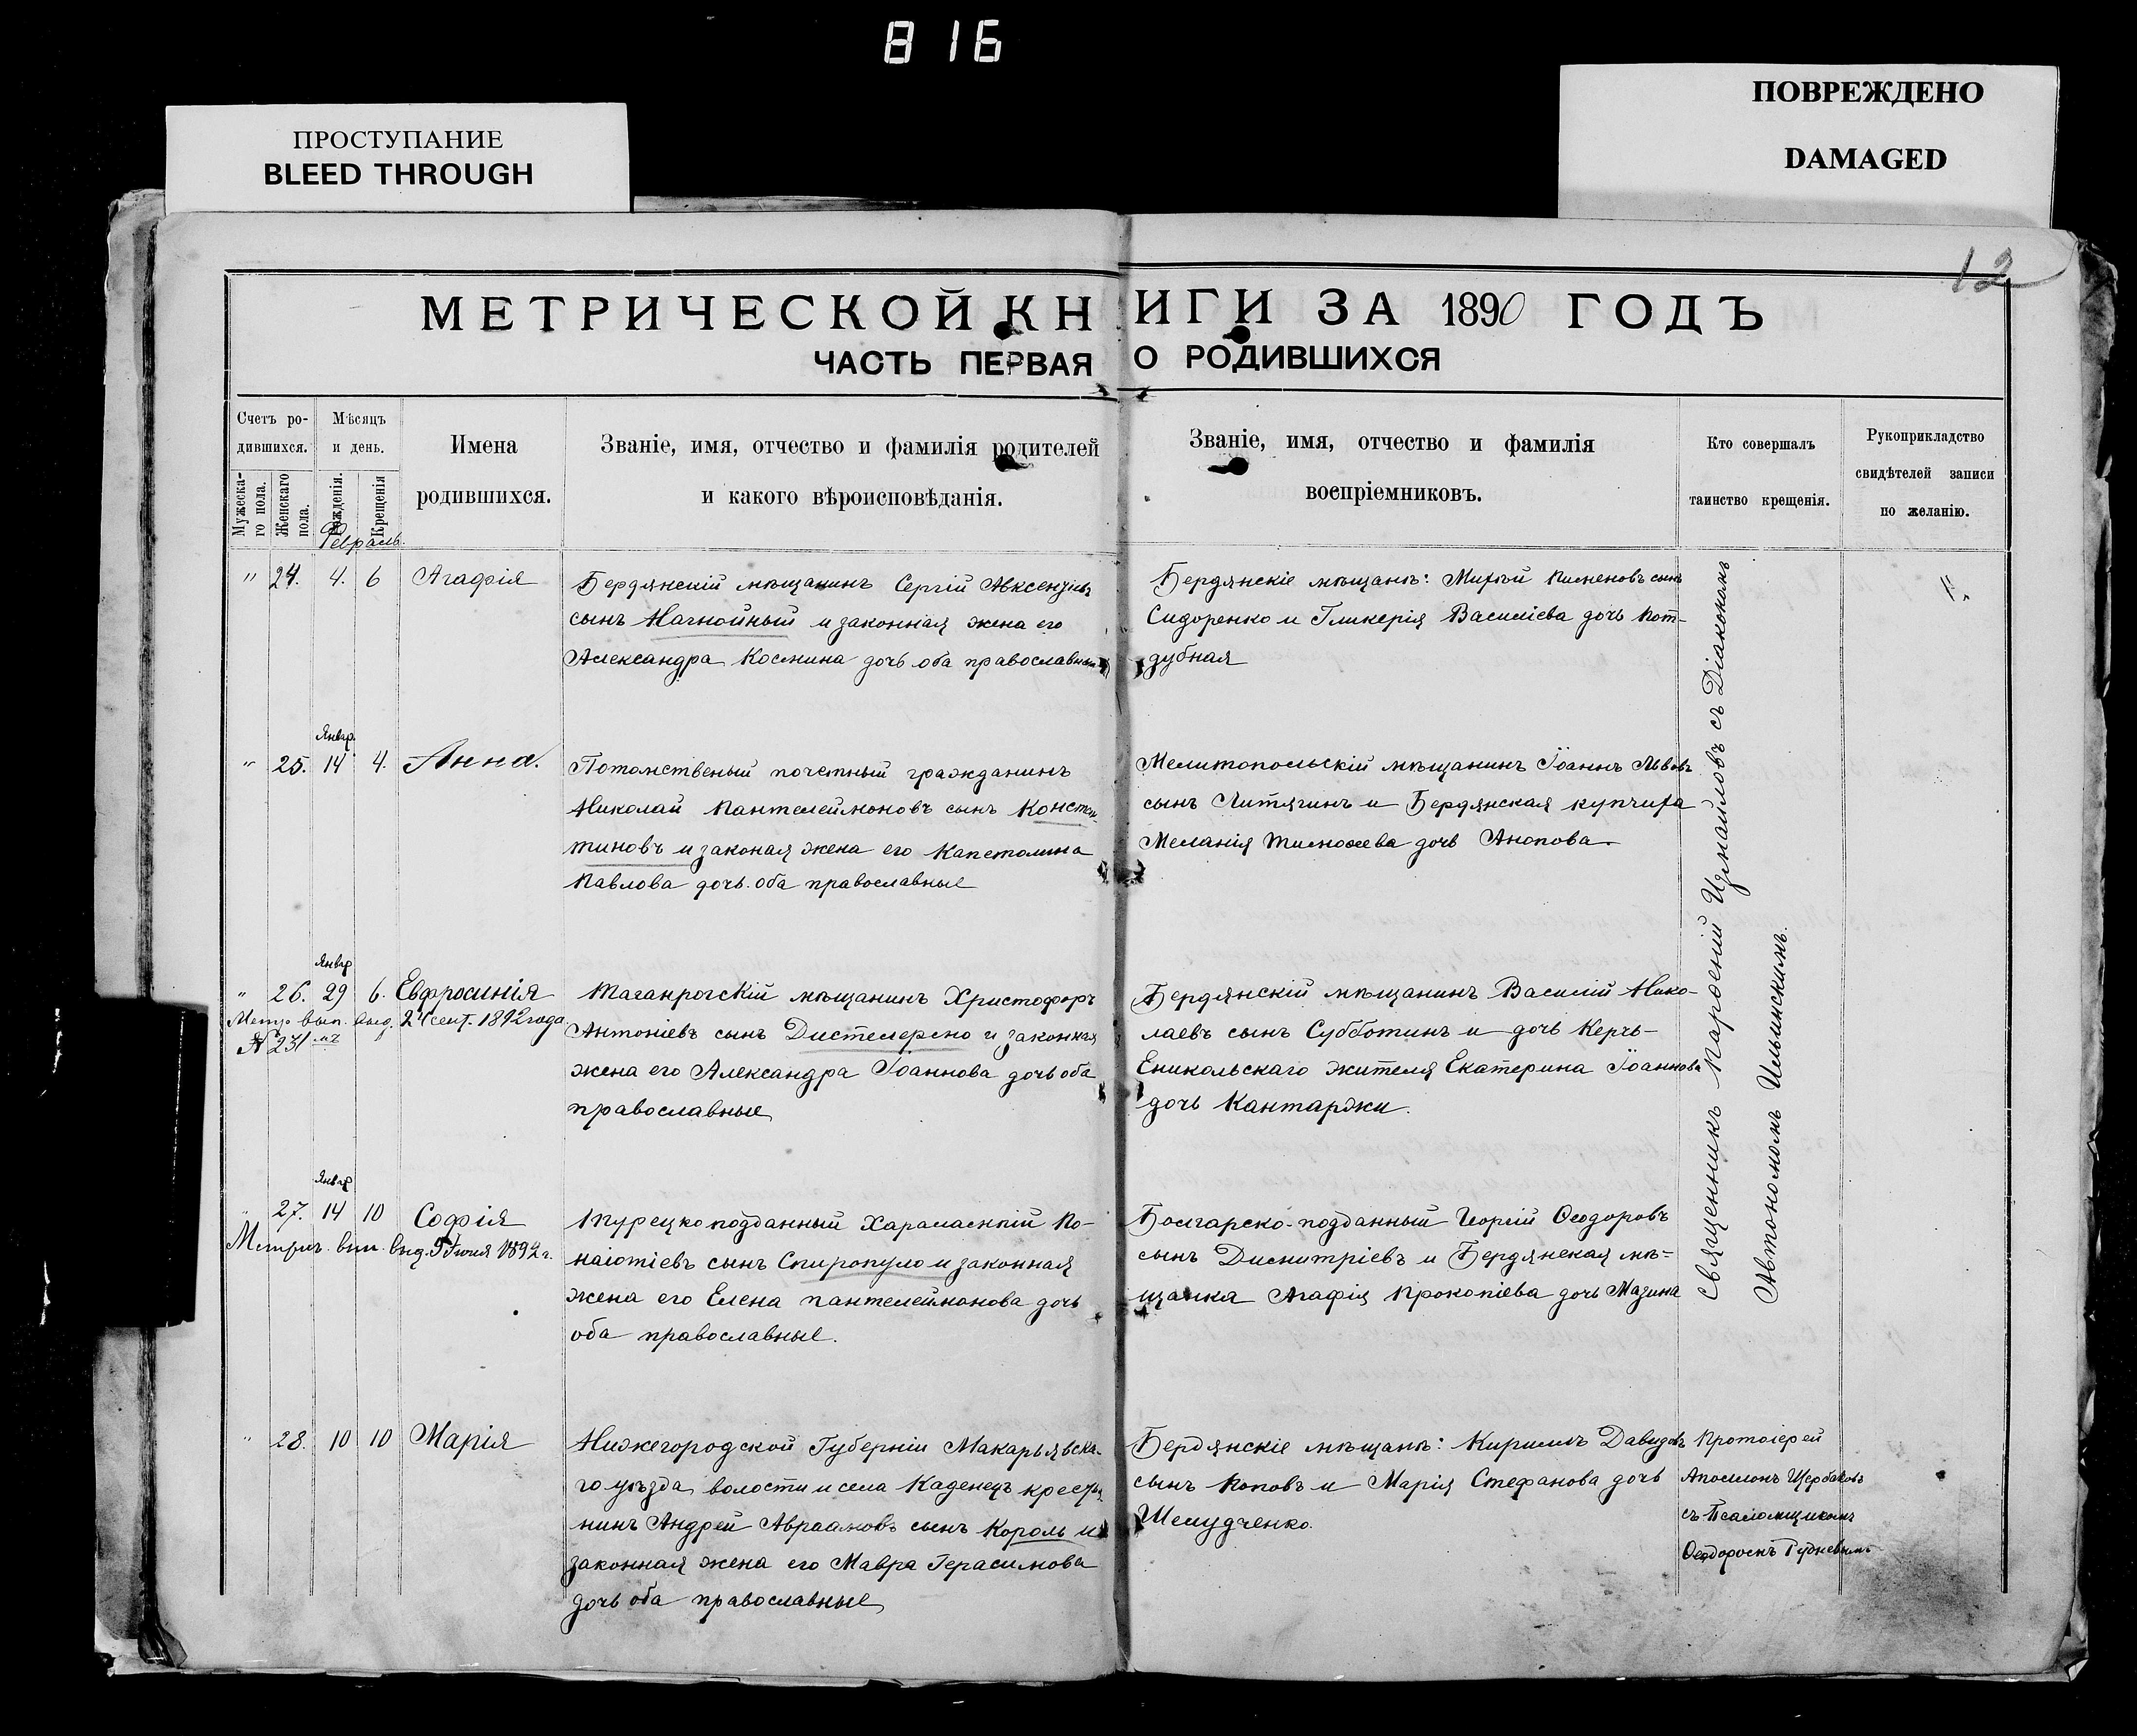 816
ПРОСТУПАНИЕ
BLEED THROUGH
ПОВРЕЖДЕНО
DAMAGED
12
МЕТРИЧЕСКОЙ КНИГИ ЗА 1890 ГОДЪ
ЧАСТЬ ПЕРВАЯ О РОДИВШИХСЯ
Счетъ ро-
дившихся.
Мужеска-
го пола.
Женскаго
пола.
Мѣсяцъ
и день.
Рожденія.
Крещенія
Имена
родившихся.
Званіе, имя, отчество и фамилія родителей
и какого вѣроисповѣданія.
Званіе, имя, отчество и фамилія
воспріемниковъ.
Кто совершалъ
таинство крещенія.
Рукоприкладство
свидѣтелей записи
по желанію.
Февраль.
" 24. 4. 6 Агафія
Бердянскій мѣщанинъ Сергій Авксентіевъ
сынъ Нагнойный и законная жена его
Александра Космина дочь оба православные
Бердянскіе мѣщанѣ: Пименовъ сынъ
Сидоренко и Гликерія Василіева дочь
дубная
"
Январ.
" 25. 14 4. Анна.
Потомственый почетный гражданинъ
Николай Пантелеймоновъ сынъ Констан-
тиновъ и законая жена его Капетолина
Павлова дочь. оба православные
Мелитопольскій мѣщанинъ Іоаннъ Львовъ
сынъ Литягинъ и Бердянская купчиха
Меланія Тимофеева дочь Анопова.
Январ
" 26. 29 6. Евфросинія
Метр. вып. выд. 24 сент. 1892 года
№ 231
Таганрогскій мѣщанинъ Христофоръ
Антоніевъ сынъ Дистелерено и законная
жена его Александра Іоаннова дочь оба
православные
Бердянскій мѣщанинъ Василій Нико-
лаевъ сынъ Субботинъ и дочь Керчь-
Еникольскаго жителя Екатерина Іоаннова
дочь Кантаржи.
Январ
" 27. 14 10 Софія
Метрич. вып. выд. 9 Іюня 1892 г.
Турецкоподданный Харалампій По-
наіотіевъ сынъ Спиропуло и законная
жена его Елена Пантелеймонова дочь
оба православные.
Болгарско-подданный Георгій Ѳеодоровъ
сынъ Димитріевъ и Бердянская мѣ-
щанка Агафія Прокопіева дочь Мазина
Священникъ Пароеній Измайловъ съ Діакономъ
Автономомъ Ильинскимъ.
" 28. 10 10 Марія
Нижегородской Губерніи Макарьявска-
го уѣзда, волости и села Каденецъ крестья
нинъ Андрей Авраамовъ сынъ Король и
законная жена его Мавра Герасимова
дочь оба православные
Бердянскіе мѣщанѣ: Кириллъ Давидовъ
сынъ Поповъ и Марія Стефанова дочь
Шелудченко.
Протоіерей
Аполлонъ Щербаковъ
съ Псаломщикомъ
Ѳеодоромъ Гудневымъ